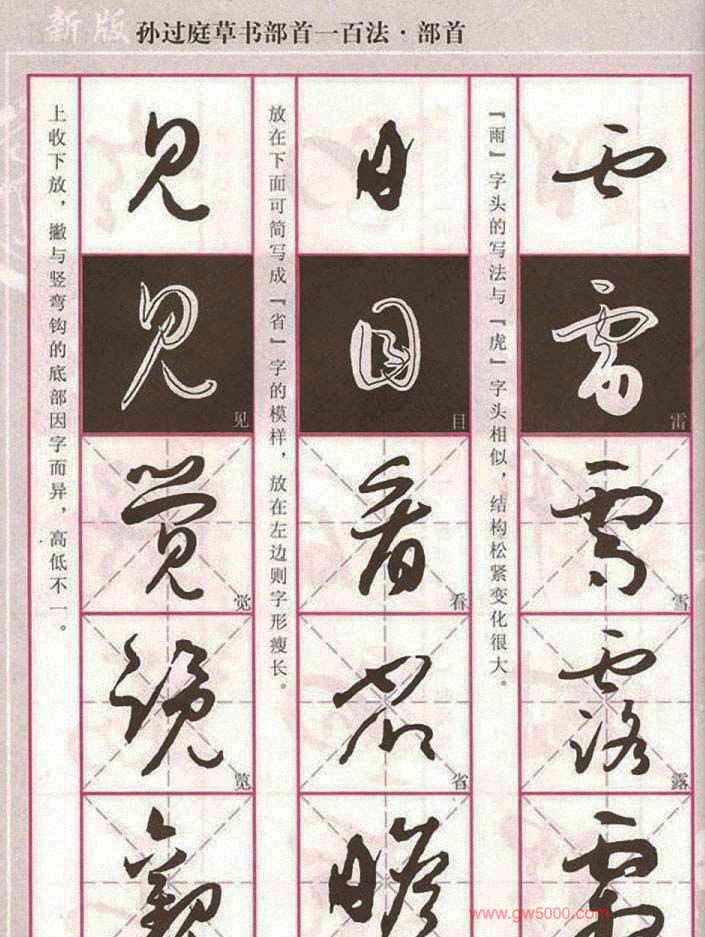 新版 孙过庭草书部首一百法·部首
『雨』字头的写法与『虎』字头相似，结构松紧变化很大。
雷
雪
露
放在下面可简写成『省』字的模样，放在左边则字形瘦长。
目
看
省
上收下放，撇与竖弯钩的底部因字而异，高低不一。
见
觉
览
www.gw5000.com